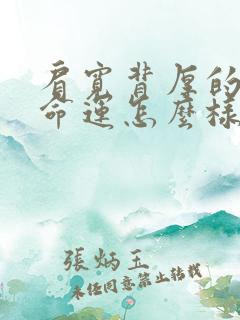 肩宽背厚的
命运怎么样
張炳玉
未经同意禁止转载